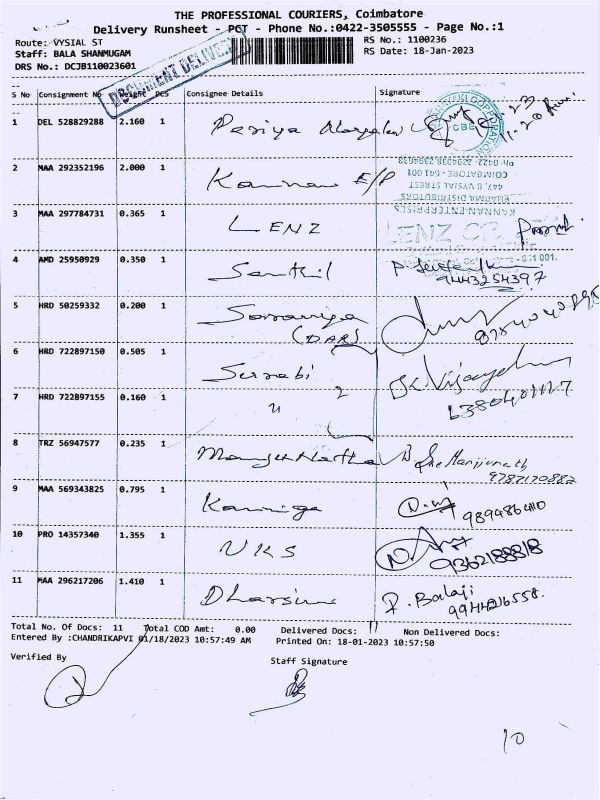 THE PROFESSIONAL COURIERS, Coimbatore
Delivery Runsheet - PCT - Phone No.:0422-3505555 - Page No.:1
Route: VYSIAL ST RS No.: 1100236
Staff: BALA SHANMUGAM RS Date: 18-Jan-2023
DRS No.: DCJB110023601
DOCUMENT DELIVERY
S No Consignment No Weight PCS Consignee Details Signature
1 DEL 528829288 2.160 1 Periya
CBE
2 MAA 292352196 2.000 1 Kannan E/P
COIMBATORE - 641 001
447, B VYSIAL STREET
PHARMA DISTRIBUTORS
KANNAN ENTERPRISES
3 MAA 297784731 0.365 1 LENZ
LENZ
4 AMD 25950929 0.350 1 Senthil
9443254397
5 HRD 50259332 0.200 1
(DAR)
6 HRD 722897150 0.505 1 Surabi
7 HRD 722897155 0.160 1 "
8 TRZ 56947577 0.235 1 Manjunatha Manjunath
9787170882
9 MAA 569343825 0.795 1 Kanniga
10 PRO 14357340 1.355 1 VKS
9362188818
11 MAA 296217206 1.410 1 P. Balaji
9944216558.
Total No. Of Docs: 11 Total COD Amt: 0.00 Delivered Docs: 11 Non Delivered Docs:
Entered By :CHANDRIKAPVI 01/18/2023 10:57:49 AM Printed On: 18-01-2023 10:57:50
Verified By Staff Signature
10